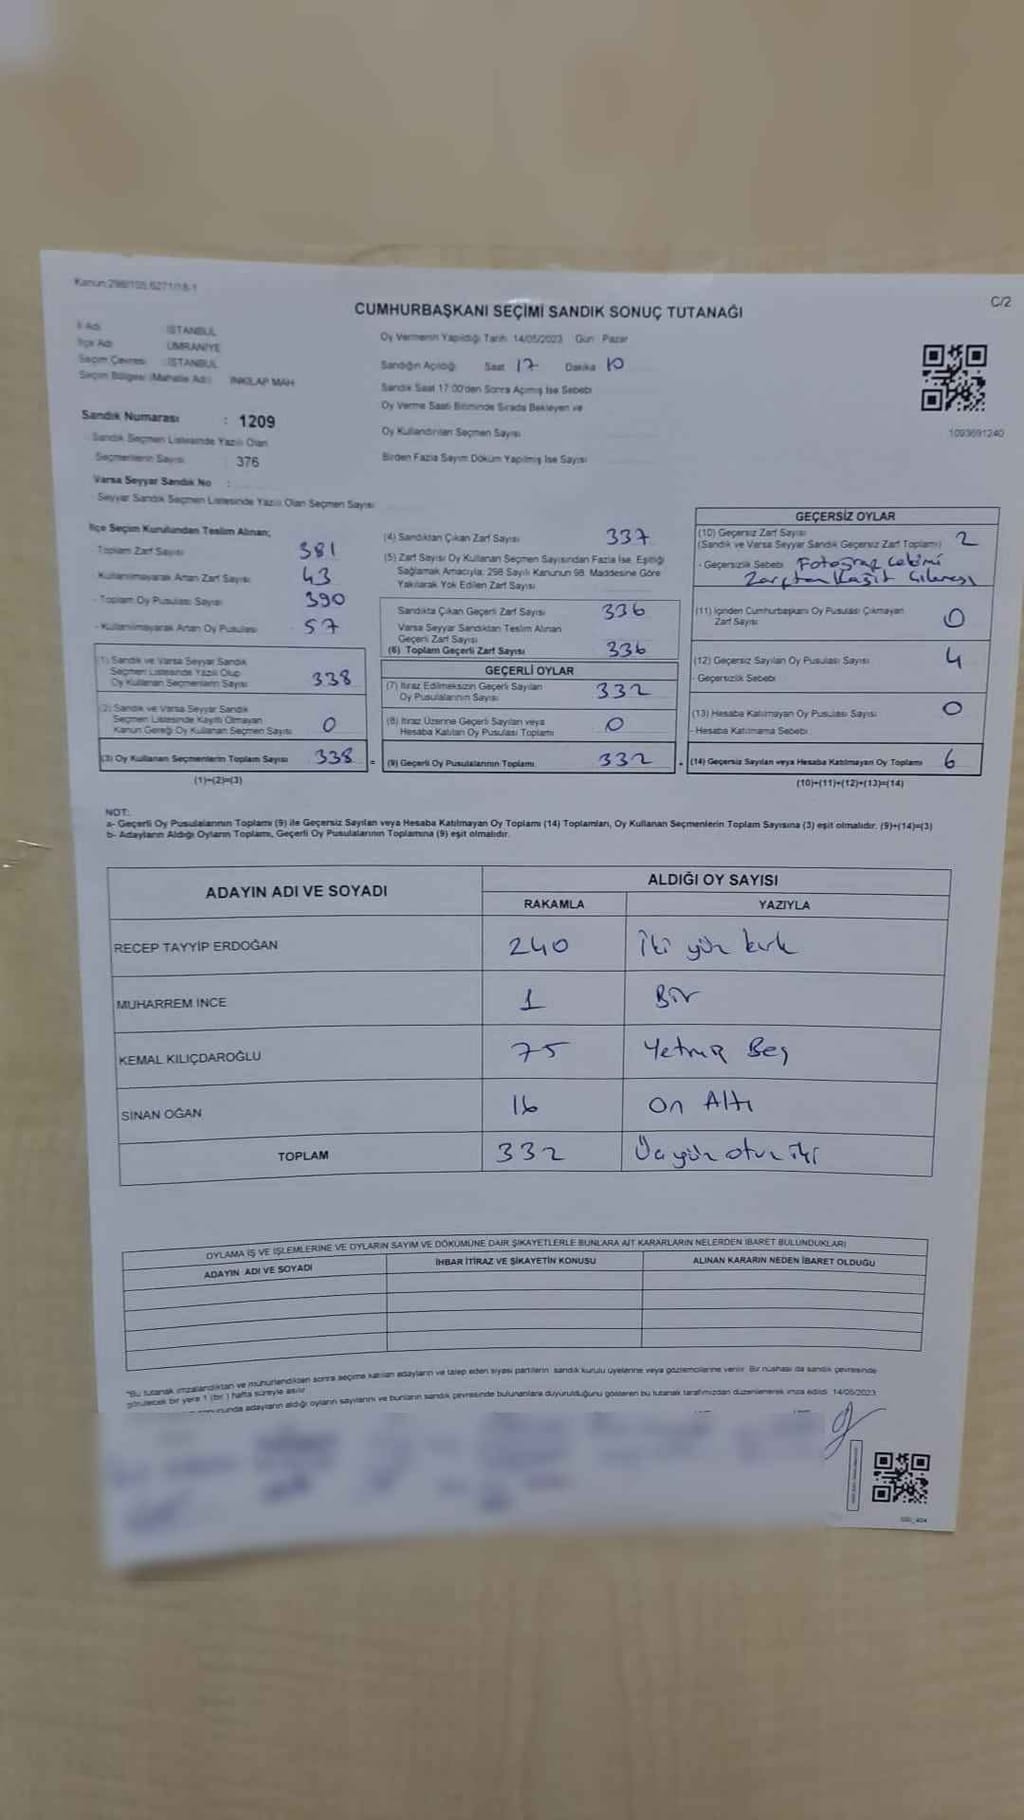 Kanun:298/105,6271/18-1
C/2
CUMHURBAŞKANI SEÇİMİ SANDIK SONUÇ TUTANAĞI
İl Adı İSTANBUL
İlçe Adı ÜMRANİYE
Seçim Çevresi İSTANBUL
Seçim Bölgesi (Mahalle Adı) İNKILAP MAH
Sandık Numarası : 1209
Sandık Seçmen Listesinde Yazılı Olan
Seçmenlerin Sayısı 376
Varsa Seyyar Sandık No :
- Seyyar Sandık Seçmen Listesinde Yazılı Olan Seçmen Sayısı
Oy Vermenin Yapıldığı Tarih 14/05/2023 Gün Pazar
Sandığın Açıldığı Saat 17 Dakika 10
Sandık Saat 17:00'den Sonra Açılmış İse Sebebi
Oy Verme Saati Bitiminde Sırada Bekleyen ve
Oy Kullandırılan Seçmen Sayısı
Birden Fazla Sayım Döküm Yapılmış İse Sayısı
1093691240
İlçe Seçim Kurulundan Teslim Alınan;
Toplam Zarf Sayısı 381
- Kullanılmayarak Artan Zarf Sayısı 43
- Toplam Oy Pusulası Sayısı 390
- Kullanılmayarak Artan Oy Pusulası 57
(1) Sandık ve Varsa Seyyar Sandık
Seçmen Listesinde Yazılı Olup
Oy Kullanan Seçmenlerin Sayısı 338
(2) Sandık ve Varsa Seyyar Sandık
Seçmen Listesinde Kayıtlı Olmayan
Kanun Gereği Oy Kullanan Seçmen Sayısı 0
(3) Oy Kullanan Seçmenlerin Toplam Sayısı 338 =
(1)+(2)=(3)
(4) Sandıktan Çıkan Zarf Sayısı 337
(5) Zarf Sayısı Oy Kullanan Seçmen Sayısından Fazla İse, Eşitliği
Sağlamak Amacıyla, 298 Sayılı Kanunun 98. Maddesine Göre
Yakılarak Yok Edilen Zarf Sayısı
Sandıkta Çıkan Geçerli Zarf Sayısı 336
Varsa Seyyar Sandıktan Teslim Alınan
Geçerli Zarf Sayısı
(6) Toplam Geçerli Zarf Sayısı 336
GEÇERLİ OYLAR
(7) İtiraz Edilmeksizin Geçerli Sayılan
Oy Pusulalarının Sayısı 332
(8) İtiraz Üzerine Geçerli Sayılan veya
Hesaba Katılan Oy Pusulası Toplamı 0
(9) Geçerli Oy Pusulalarının Toplamı 332
GEÇERSİZ OYLAR
(10) Geçersiz Zarf Sayısı
(Sandık ve Varsa Seyyar Sandık Geçersiz Zarf Toplamı) 2
- Geçersizlik Sebebi Fotoğraf Çekimi
Zarftan Kağıt Çıkması
(11) İçinden Cumhurbaşkanı Oy Pusulası Çıkmayan
Zarf Sayısı 0
(12) Geçersiz Sayılan Oy Pusulası Sayısı 4
- Geçersizlik Sebebi
(13) Hesaba Katılmayan Oy Pusulası Sayısı 0
- Hesaba Katılmama Sebebi
(14) Geçersiz Sayılan veya Hesaba Katılmayan Oy Toplamı 6
(10)+(11)+(12)+(13)=(14)
NOT:
a- Geçerli Oy Pusulalarının Toplamı (9) ile Geçersiz Sayılan veya Hesaba Katılmayan Oy Toplamı (14) Toplamları, Oy Kullanan Seçmenlerin Toplam Sayısına (3) eşit olmalıdır. (9)+(14)=(3)
b- Adayların Aldığı Oyların Toplamı, Geçerli Oy Pusulalarının Toplamına (9) eşit olmalıdır.
ADAYIN ADI VE SOYADI ALDIĞI OY SAYISI
RAKAMLA YAZIYLA
RECEP TAYYİP ERDOĞAN 240 İki yüz kırk
MUHARREM İNCE 1 Bir
KEMAL KILIÇDAROĞLU 75 Yetmiş Beş
SİNAN OĞAN 16 On Altı
TOPLAM 332 Üç yüz otuz iki
OYLAMA İŞ VE İŞLEMLERİNE VE OYLARIN SAYIM VE DÖKÜMÜNE DAİR ŞİKAYETLERLE BUNLARA AİT KARARLARIN NELERDEN İBARET BULUNDUKLARI
ADAYIN ADI VE SOYADI İHBAR İTİRAZ VE ŞİKAYETİN KONUSU ALINAN KARARIN NEDEN İBARET OLDUĞU
"Bu tutanak imzalandıktan ve mühürlendikten sonra seçime katılan adayların ve talep eden siyasi partilerin sandık kurulu üyelerine veya gözlemcilerine verilir. Bir nüshası da sandık çevresinde
görülecek bir yere 1 (bir) hafta süreyle asılır
adayların aldığı oyların sayılarını ve bunların sandık çevresinde bulunanlara duyurulduğunu gösteren bu tutanak tarafımızdan düzenlenerek imza edildi. 14/05/2023